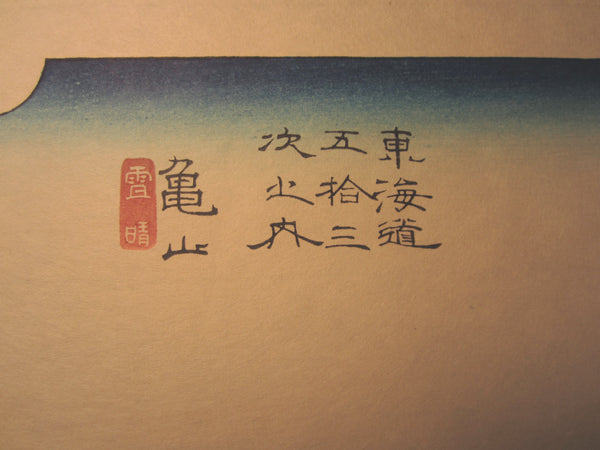 東海道
五拾三
次之内
亀山
雪晴